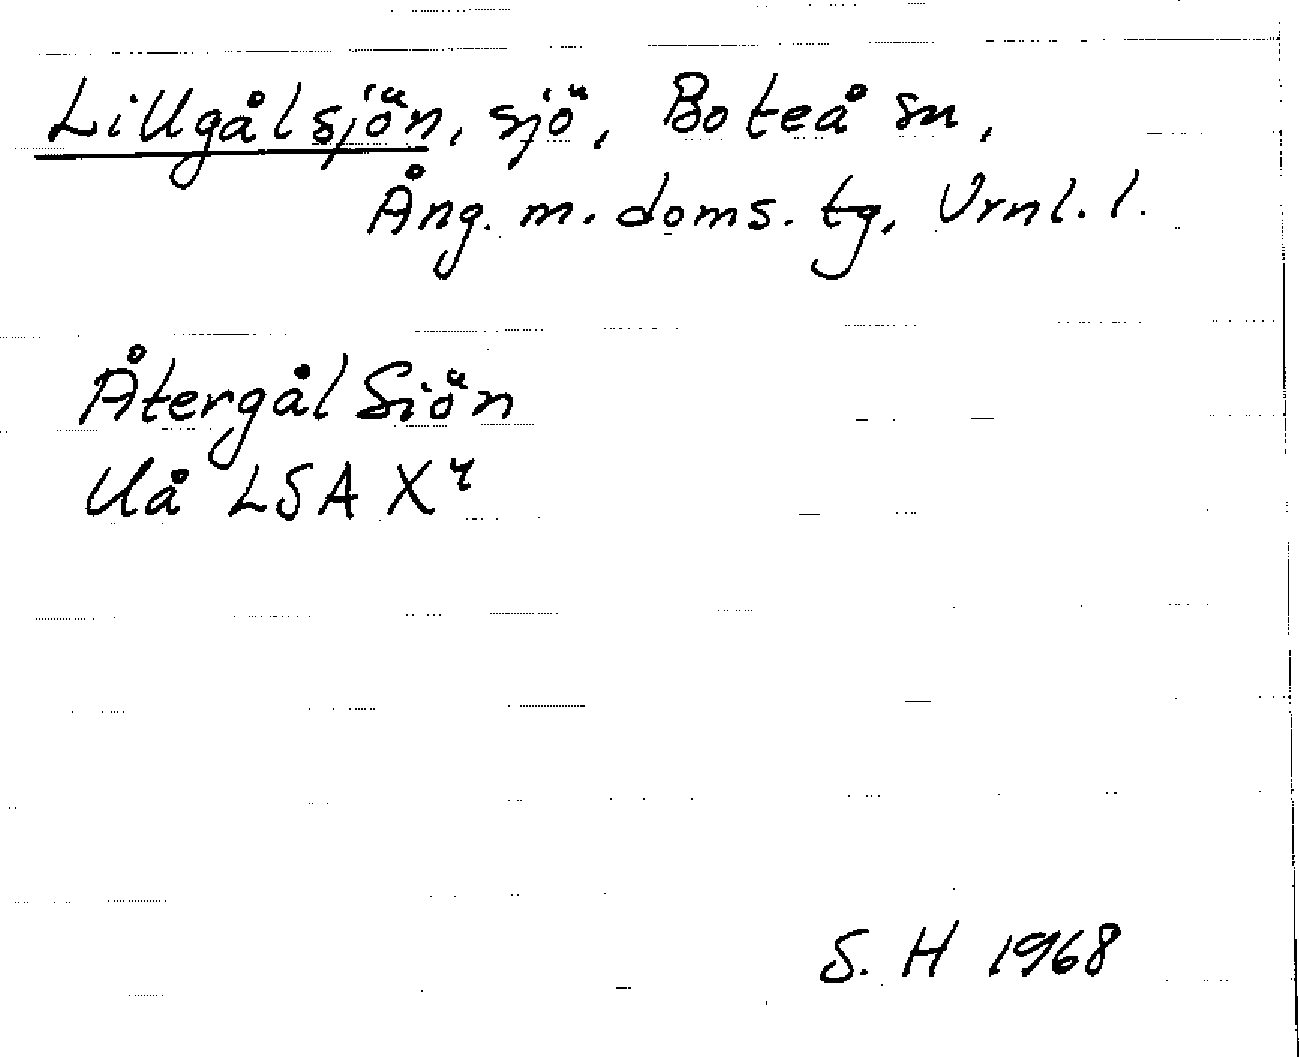 Lillgålsjön, sjö, Boteå sn,
Ång. m. doms. tg, Vrnl. l.
Återgål Siön
Uå LSA X4
S. H 1968